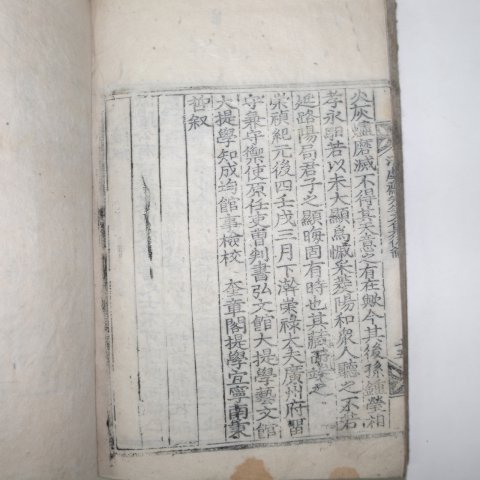 炎灰蠧磨滅不得其天意之有在歟今其後孫鍾瑩相
孝永昭若以未大顯爲慽朱葵陽和衆人聽之不若
延路陽局君子之顯晦固有時也其
崇禎紀元後四壬戌三月下澣崇祿大夫廣州府留
守兼守禦使原任吏曹判書弘文館大提學藝文館
大提學知成均館事檢校 奎章閣提學宜寧南
舊叙